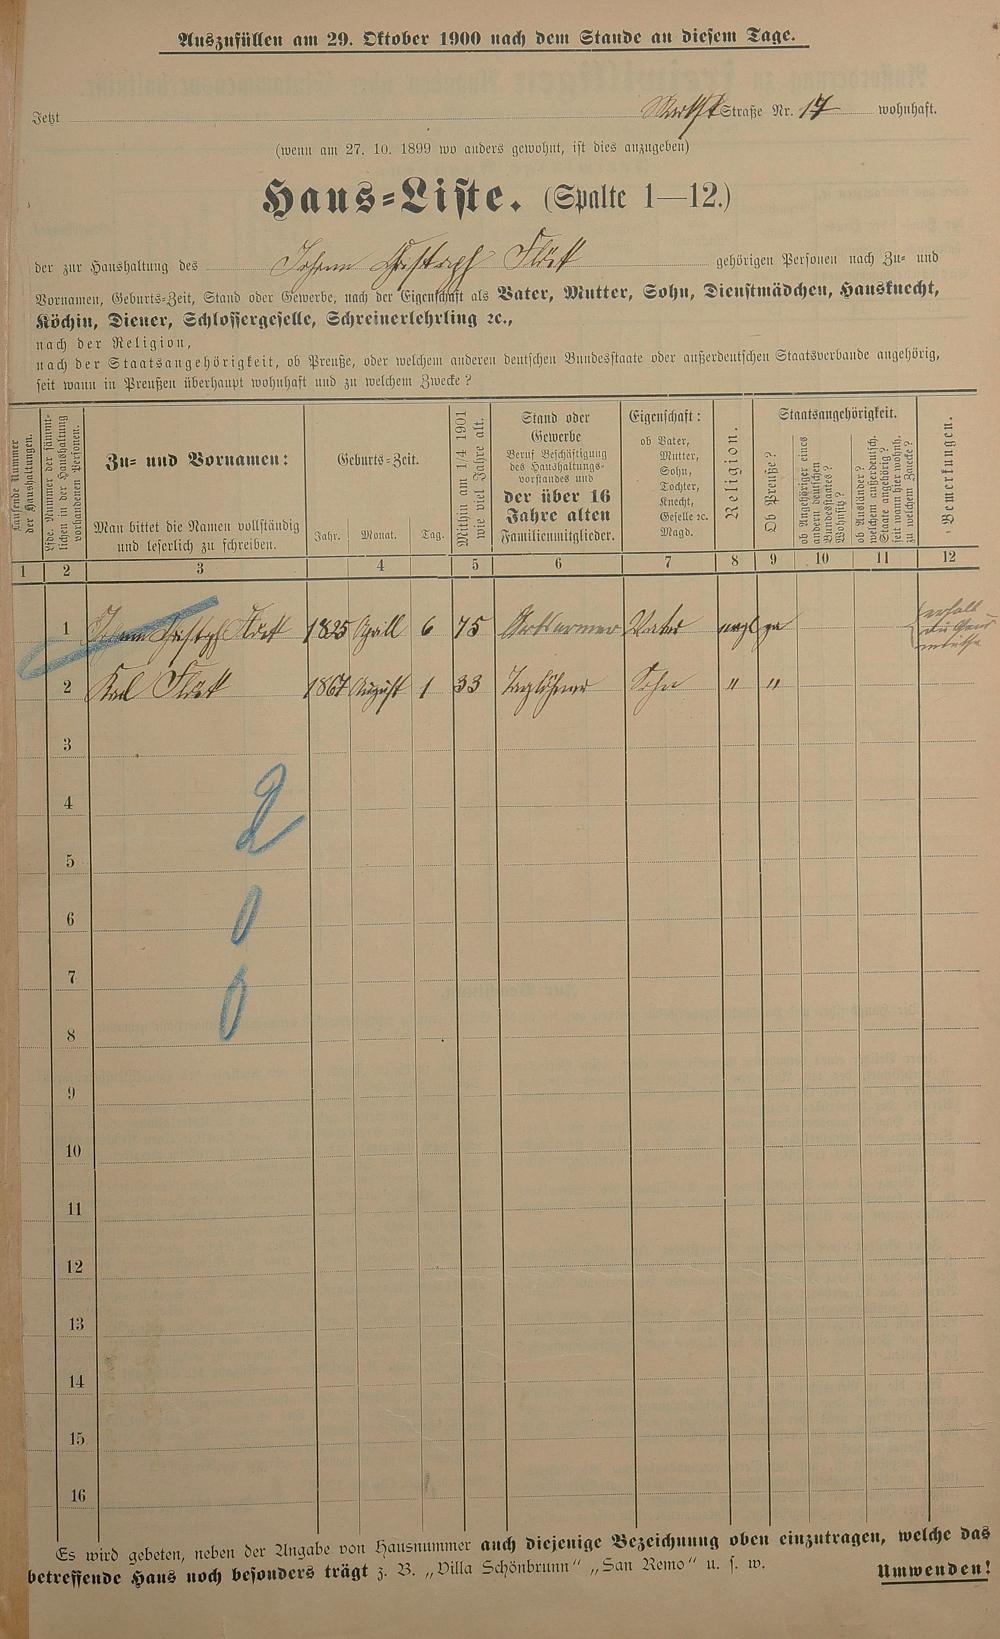 Auszufüllen am 29. Oktober 1900 nach dem Stande an diesem Tage.
Jetzt Straße Nr. 17 wohnhaft.
(wenn am 27. 10. 1899 wo anders gewohnt, ist dies anzugeben)
Haus-Liste. (Spalte 1—12.)
der zur Haushaltung des Johann Christoph gehörigen Personen nach Zu- und
Vornamen, Geburts-Zeit, Stand oder Gewerbe, nach der Eigenschaft als Vater, Mutter, Sohn, Dienstmädchen, Hausknecht,
Köchin, Diener, Schlossergeselle, Schreinerlehrling ꝛc.,
nach der Religion,
nach der Staatsangehörigkeit, ob Preuße, oder welchem anderen deutschen Bundesstaate oder außerdeutschen Staatsverbande angehörig,
seit wann in Preußen überhaupt wohnhaft und zu welchem Zwecke?
Laufende Nummer
der Haushaltungen.
Lfde. Nummer der sämmt-
lichen in der Haushaltung
vorhandenen Personen.
Zu- und Vornamen:
Man bittet die Namen vollständig
und leserlich zu schreiben.
Geburts-Zeit.
Jahr. Monat. Tag.
Mithin am 1/4 1901
wie viel Jahre alt.
Stand oder
Gewerbe
Beruf Beschäftigung
des Haushaltungs-
vorstandes und
der über 16
Jahre alten
Familienmitglieder.
Eigenschaft:
ob Vater,
Mutter,
Sohn,
Tochter,
Knecht,
Geselle ꝛc.
Magd.
Religion.
Staatsangehörigkeit.
Ob Preuße?
ob Angehöriger eines
andern deutschen
Bundesstaates?
Wohnsitz?
ob Ausländer?
welchem außerdeutsch.
Staate angehörig?
seit wann hier wohnh.
zu welchem Zwecke?
Bemerkungen.
1 2 3 4 5 6 7 8 9 10 11 12
1 Johann Christoph 1825 Aprill 6 75 Ortsarmer Vater evgl ja
2 Karl 1867 August 1 33 Taglöhner Sohn " "
3
4
2
5
6
0
7
0
8
9
10
11
12
13
14
15
16
Es wird gebeten, neben der Angabe von Hausnummer auch diejenige Bezeichnung oben einzutragen, welche das
betreffende Haus noch besonders trägt z. B. „Villa Schönbrunn“ „San Remo“ u. s. w.
Umwenden!